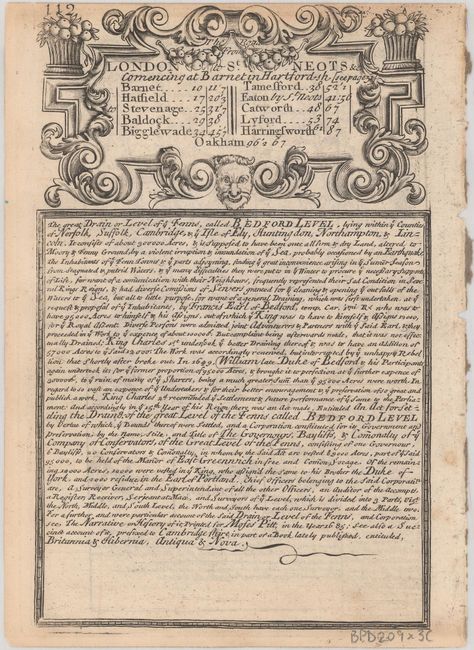 112
The Road
From
LONDON to St. NEOTS &c.
Comencing at Barnet in Hartfordsh. (see page
Barnet 10 11
Hatfield 17 20'3
Stevenage 25 31'3
Baldock 29 38
Bigglewade 34 45'5
Tamesford 38 52'1
Eaton by St. Neots 41 56
Catworth 48 67
Lyford 53 74
Harringsworth 61 87
Oakham 96'2 67
The great Drain or Level of ye Fenns, called BEDFORD LEVEL, lying within ye Counties
of Norfolk, Suffolk, Cambridge, & ye Isle of Ely, Huntingdon, Northampton, & Lin-
coln. It consists of about 300000 Acres, & is supposed to have been once all firm & dry Land, altered to
Moory & Fenny Ground, by a violent irruption & inundation of ye Sea, probably occasioned by an Earthquake.
The Inhabitants of ye Fenn Towns & ye parts adjoyning, finding ye great inconvenience arising in ye Summer Season
from stagnated & putrid Waters, & ye many difficulties they were put to in ye Winter to procure ye necessary support
of Life, for want of a communication with their Neighbours, frequently represented their sad Condition in Seve-
ral Kings Reigns, & had diverse Comissions of Sewers pointed for ye cleansing & opening ye out falls of the
Waters to ye Sea, but all to little purpose, for want of a general Draining, which was first undertaken at ye
request & proposal of ye Inhabitants, by Francis Earl of Bedford, temp. Car. I who was to
have 95000 Acres to himself & his Assigns, out of which ye King was to have to himself & Assigns 12000
for ye Royal Assent. Divers Persons were admitted joint Adventurers & Partners with ye Said Earl, & they
proceeded in ye Work to ye expence of about 100000£. But complaint being afterwards made, that it was not effec-
tually Drained; King Charles 1st undertook ye better Draining thereof & was to have an addition of
57000 Acres to ye Said 12000. The Work was accordingly renewed, but interrupted by ye unhappy Rebel-
lion that Shortly after broke out. In 1649, William late Duke of Bedford & his Participants
again undertook its for ye former proportion of 95000 Acres, & brought it to perfection at ye further expence of
300000£. to ye ruin of many of ye Sharers, being a much greater Sum than ye 95000 Acres were worth. In
regard to so vast an expence of ye Undertakers & for their better encouragement & ye preservation of so great and
publick a work, King Charles 2d recomended ye Settlement & future performance of ye Same to the Parlia-
ment: and accordingly in ye 15th Year of his Reign there was an Act made, Entituled An Act for sett-
ling the Draining of the great Level of the Fenns called BEDFORD LEVEL
by Vertue of which, ye Bounds thereof were Settled, and a Corporation constituted for its Government and
preservation, by the Name, Stile, and Title of The Governour, Bayliffs, & Comonalty of ye
Company of Conservators of the Great Level of the Fenns, consisting of one Governour,
6 Bayliffs, 20 Conservators & Comonalty, in whom by the Said Act are vested 83000 Acres, part of ye Said
95000, to be held of the Manor of East Greenwich in free and Comon Socage. Of the remain-
ing 12000 Acres, 10000 were vested in ye King, who assigned the Same to his Brother the Duke of
York, and 2000 residue in the Earl of Portland. Chief Officers belonging to the Said Corporation
are, A Surveyor General and Superintendent of all the other Officers, an Auditor of the Accompts,
a Register, Receiver, Serjeant at Mace, and Surveyors of ye Level, which is divided into 3 Parts, (viz)
the North, Middle, and South Level, the North and South have each one Surveyor, and the Middle two.
For a further, and more particular account of the Said Drain or Level of the Fenns, and Corporation
See, The Narrative or History of it Printed for Moses Pitt, in the Year 1685. See also a Suc-
cinct account of it, prefixed to Cambridgshire, in part of a Book lately published, entituled,
Britannia & Hibernia, Antiqua & Nova.
BPD209 x 3C